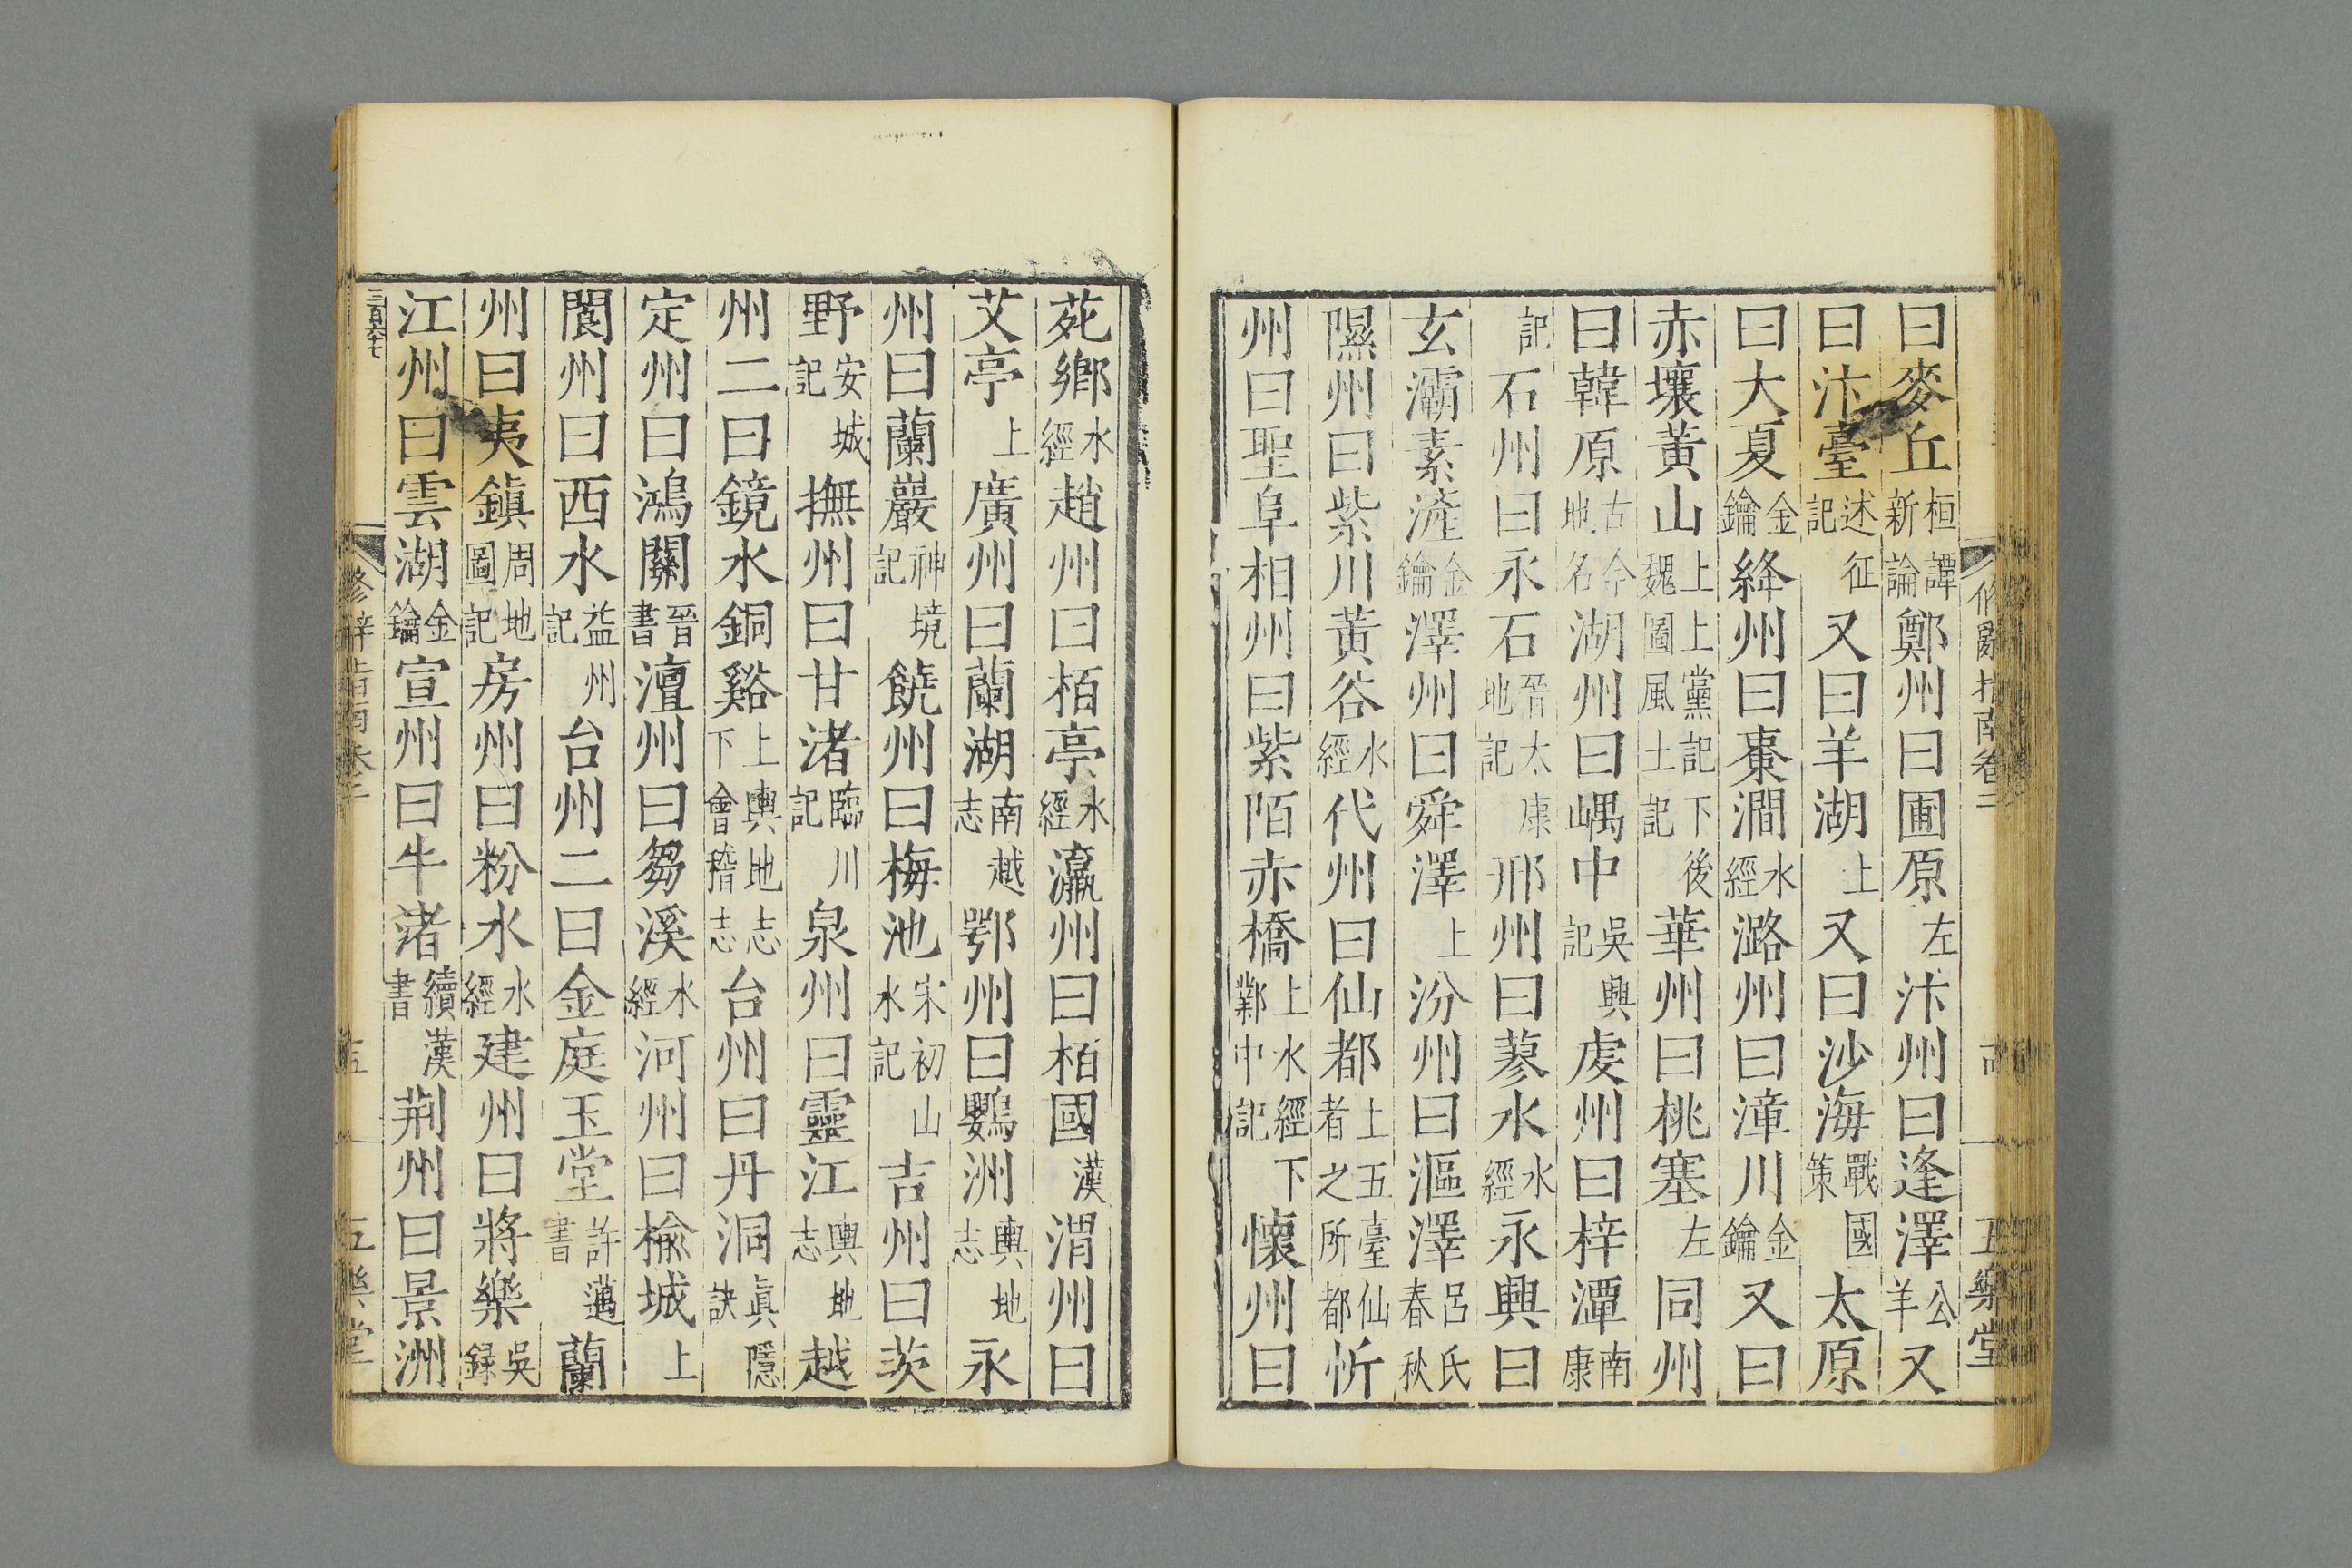 曰麥丘桓譚新論鄭州曰圃原左汴州曰逢澤公羊又
曰汴臺述征記又曰羊湖上又曰沙海戰國策太原
曰大夏金鑰絳州曰棗澗水經潞州曰漳川金鑰又曰
赤壤黃山上上黨記下後魏圖風土記華州曰桃塞左同州
曰韓原古今地名湖州曰嵎中吳興記虔州曰梓潭南康
記石州曰永石晉太康地記邢州曰蓼水水經永興曰
玄灞素滻金鑰澤州曰舜澤上汾州曰漚澤呂氏春秋
隰州曰紫川黃谷水經代州曰仙都上五臺仙者之所都忻
州曰聖阜相州曰紫陌赤橋上水經下鄴中記懷州曰
苑鄉水經趙州曰栢亭水經瀛州曰栢國漢渭州曰
艾亭上廣州曰蘭湖南越志鄂州曰鸚洲輿地志永
州曰蘭巖神境記饒州曰梅池宋初山水記吉州曰茨
野安城記撫州曰甘渚臨川記泉州曰靈江輿地志越
州二曰鏡水銅谿上輿地志下會稽志台州曰丹洞眞隱訣
定州曰鴻關晉書澶州曰芻溪水經河州曰榆城上
閬州曰西水益州記台州二曰金庭玉堂許邁書蘭
州曰夷鎮周地圖記房州曰粉水水經建州曰將樂吳録
江州曰雲湖金鑰宣州曰牛渚續漢書荆州曰景洲
修辭指南卷二
五樂堂